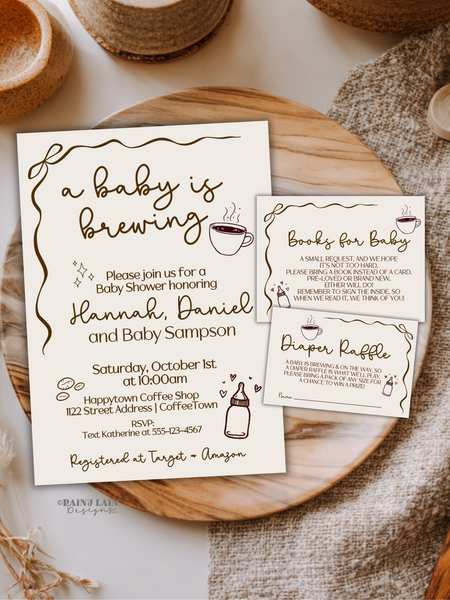 a baby is
brewing
Please join us for a
Baby Shower honoring
Hannah, Daniel
and Baby Sampson
Saturday, October 1st
at 10:00am
Happytown Coffee Shop
1122 Street Address | CoffeeTown
RSVP:
Text Katherine at 555-123-4567
Registered at Target + Amazon
Books for Baby
A SMALL REQUEST, AND WE HOPE
IT'S NOT TOO HARD,
PLEASE BRING A BOOK INSTEAD OF A CARD.
PRE-LOVED OR BRAND NEW,
EITHER WILL DO!
REMEMBER TO SIGN THE INSIDE, SO
WHEN WE READ IT, WE THINK OF YOU!
Diaper Raffle
A BABY IS BREWING & ON THE WAY, SO
A DIAPER RAFFLE IS WHAT WE'LL PLAY.
PLEASE BRING A PACK OF ANY SIZE FOR
A CHANCE TO WIN A PRIZE!
Name
Designs